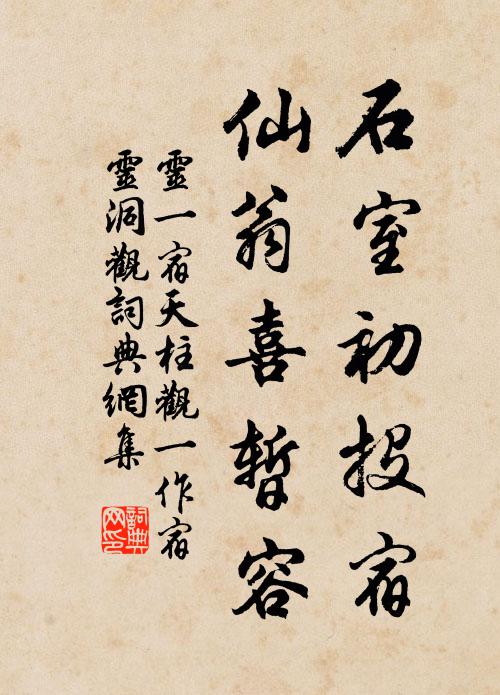 石室初投宿
仙翁喜暫容
靈一宿天柱觀一作宿
靈洞觀詞典網集
詞典
网印